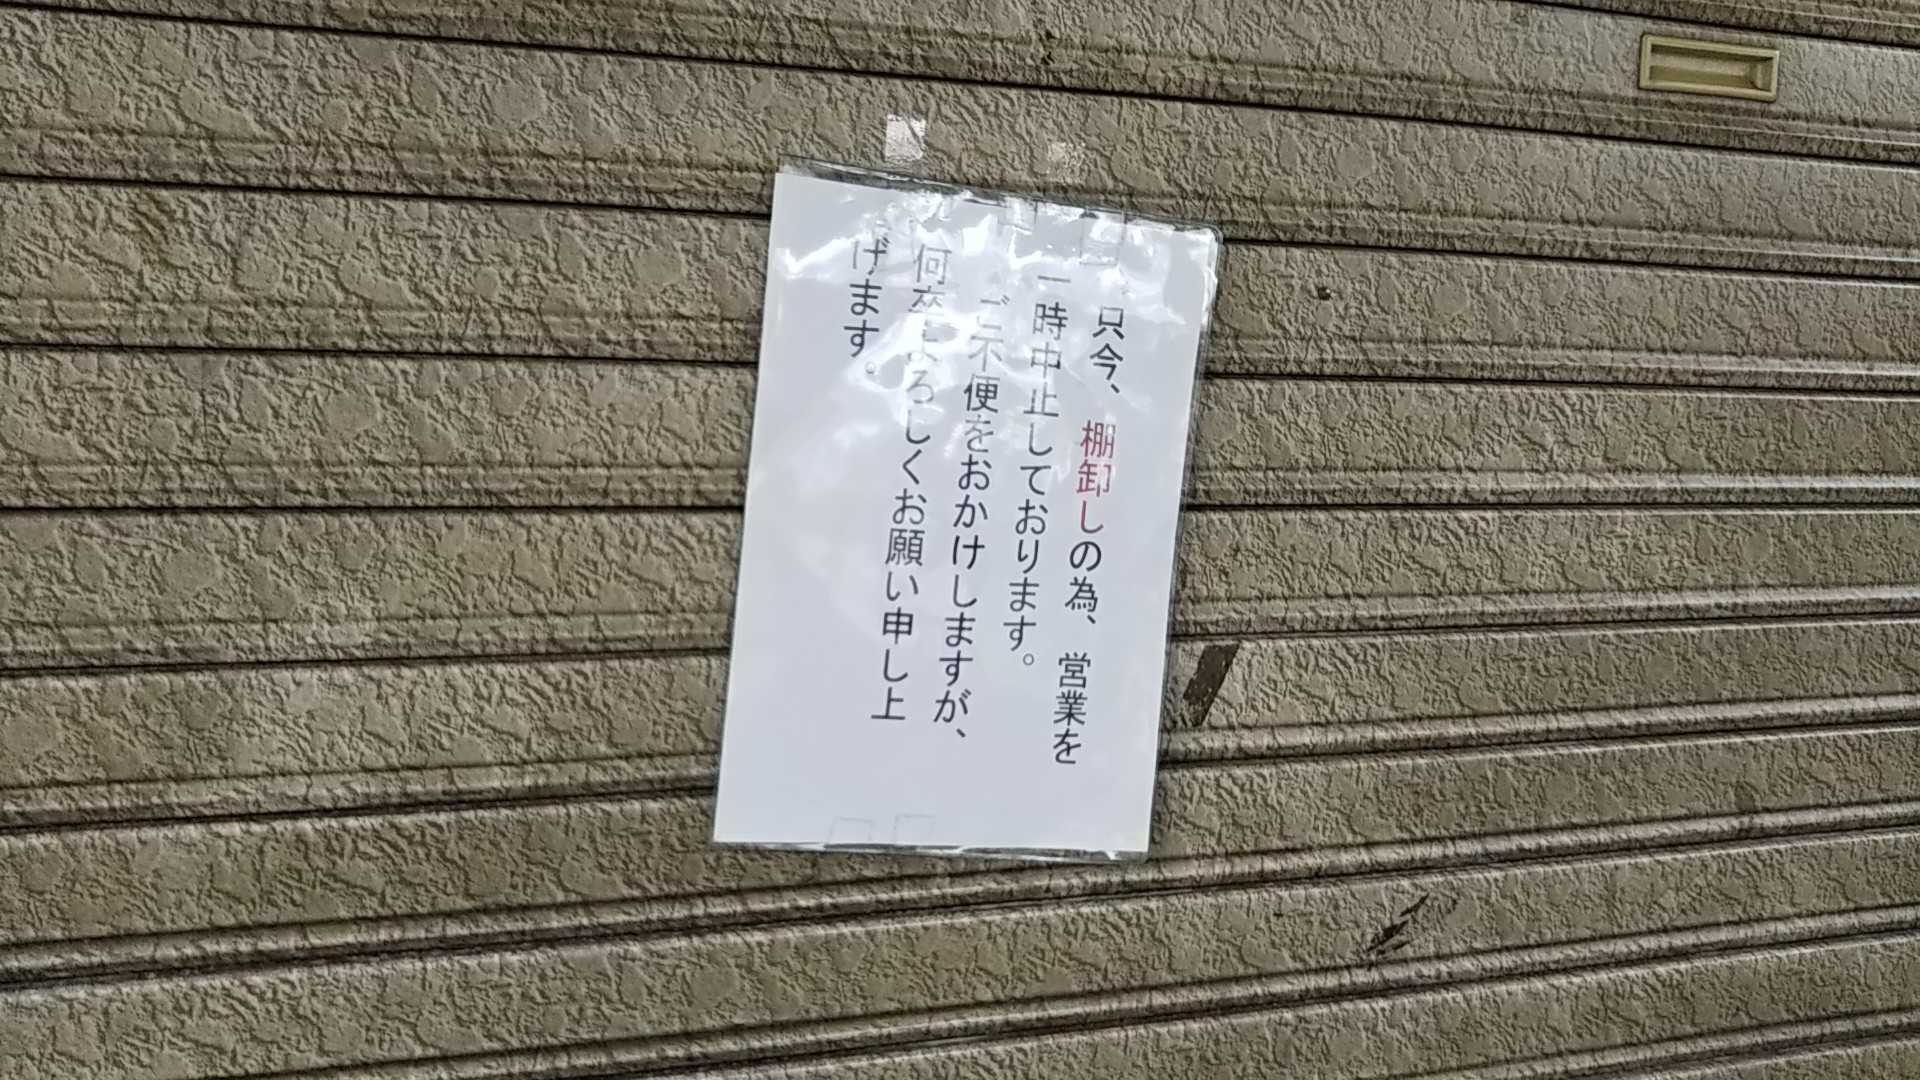 只今、棚卸しの為、営業を
一時中止しております。
ご不便をおかけしますが、
何卒よろしくお願い申し上
げます。